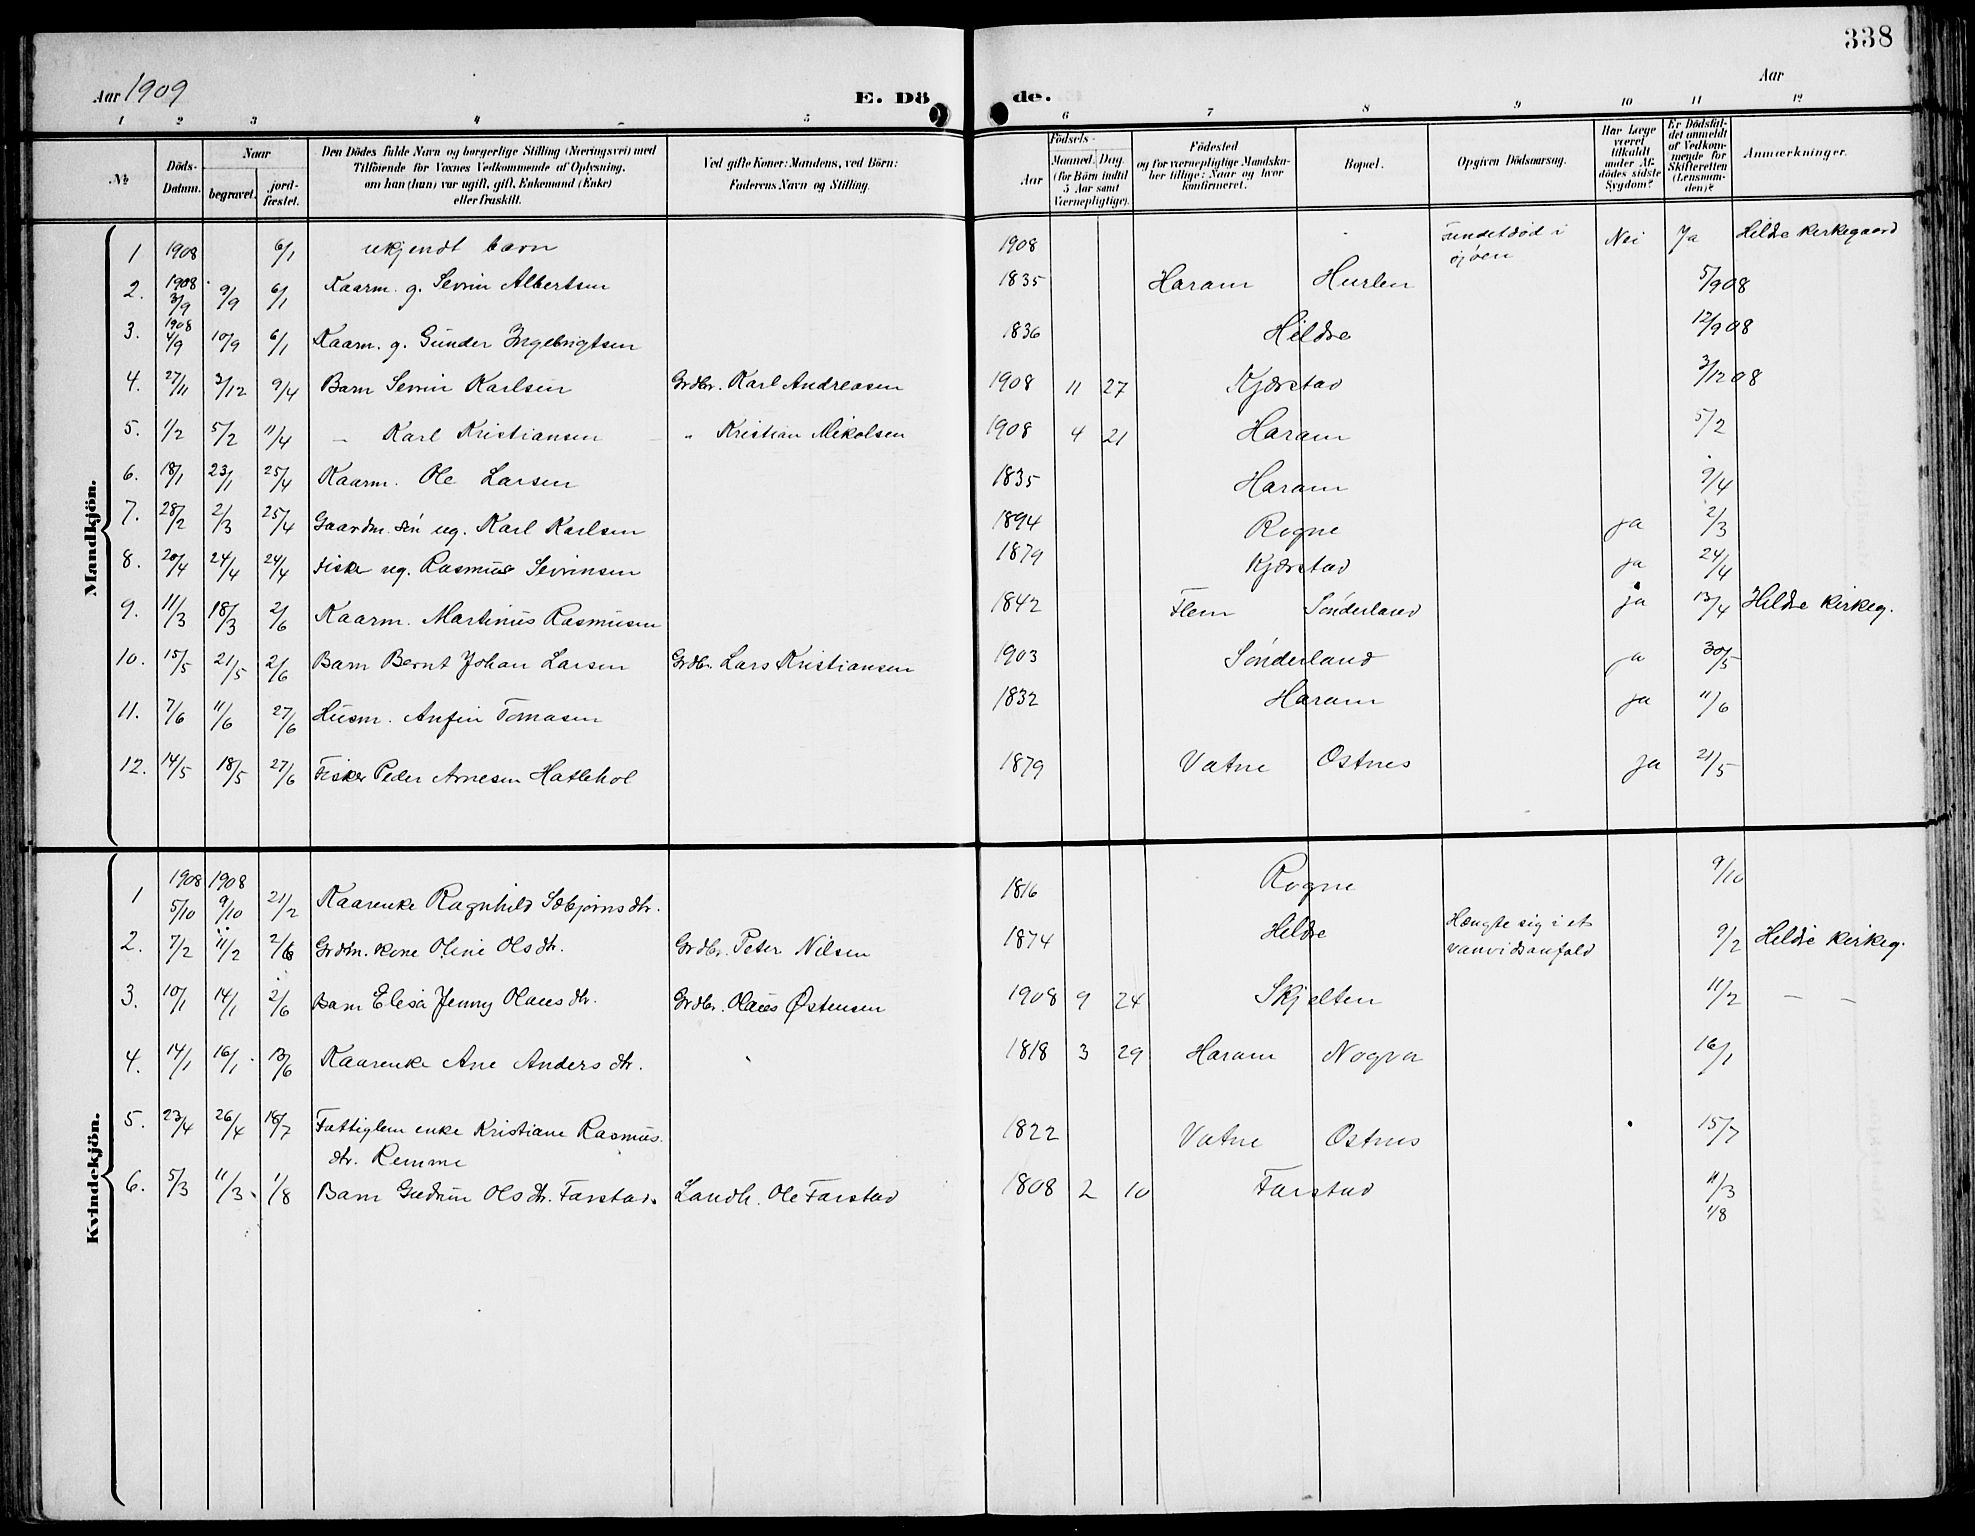 338
Aar 1909
E. Dö
de.
Aar
1 2 3 4 5 6 7 8 9 10 11 12
№
Döds-Datum.
Naar
begravet.
jord-fæstet.
Den Dödes fulde Navn og borgerlige Stilling (Næringsvei) med
Tilföiende for Voxnes Vedkommende af Oplysning,
om han (hun) var ugift, gift, Enkemand (Enke)
eller fraskilt.
Ved gifte Koner: Mandens, ved Börn:
Faderens Navn og Stilling.
Födsels-
Aar
Maaned. Dag.
(for Börn indtil
5 Aar samt
Værnepligtige).
Födested
og for værnepligtige Mandska-
ber tillige: Naar og hvor
konfirmeret.
Bopæl.
Opgiven Dödsaarsag.
Har Læge
været
tilkaldt
under Af-
dödes sidste
Sygdom?
Er Dödsfal-
det anmeldt
af Vedkom-
mende for
Skifteretten
(Lensman-
den)?
Anmærkninger.
Mandkjön.
1 1908 6/1 ukjendt barn 1908 Fundet død i sjøen Nei Ja Hildre kirkegaard
2. 1908 3/9 9/9 6/1 Kaarm. g. Sevrin Albertsen 1835 Haram Hurlen 5/9 08
3. 1908 4/9 10/9 6/1 Kaarm. g. Gunder Ingebrigtsen 1836 Hildre 12/9 08
4. 27/11 3/12 9/4 Barn Sevrin Karlsen Grdbr. Karl Andreasen 1908 11 27 Kjærstad 3/12 08
5. 1/2 5/2 11/4 — Karl Kristiansen — „ Kristian Nikolsen 1908 4 21 Haram 5/2
6. 18/1 23/1 25/4 Kaarm. Ole Larsen 1835 Haram 9/4
7. 28/2 2/3 25/4 Gaardm. søn ug. Karl Karlsen 1894 Rogne ja 2/3
8. 20/4 24/4 24/4 Fisker ug. Rasmus Sevrinsen 1879 Kjærstad ja 24/4
9. 11/3 18/3 2/6 Kaarm. Martinus Rasmusen 1842 Flem Sønderland ja 13/4 Hildre kirkeg.
10. 15/5 21/5 2/6 Barn Bernt Johan Larsen Grdbr. Lars Kristiansen 1903 Sønderland ja 30/5
11. 7/6 11/6 27/6 Husm. Anfin Tomasen 1832 Haram ja 11/6
12. 14/5 18/5 27/6 Fisker Peder Arnesen Hatlehol 1879 Vatne Ostnes ja 21/5
Kvindekjön.
1 1908 5/10 1908 9/10 21/2 Kaarenke Ragnhild Sebjørnsdtr. 1816 Rogne 9/10
2. 7/2 11/2 2/6 Grdm. kone Oline Olsdtr. Grdbr. Peter Nilsen 1874 Hildre Hængte sig i et vanvidsanfald 9/2 Hildre kirkeg.
3. 10/1 14/1 2/6 Barn Elisa Jenny Olausdtr. Grdbr. Olaus Østensen 1908 9 24 Skjelten 11/2 — —
4. 14/1 16/1 13/6 Kaarenke Ane Andersdtr. 1818 3 29 Haram Nogva 16/1
5. 23/4 26/4 18/7 Fattiglem enke Kristiane Rasmus-
dtr. Remme 1822 Vatne Ostnes 15/7
6. 5/3 11/3 1/8 Barn Gudrun Olsdtr. Farstad Landh. Ole Farstad 1808 2 10 Farstad 11/3
1/8